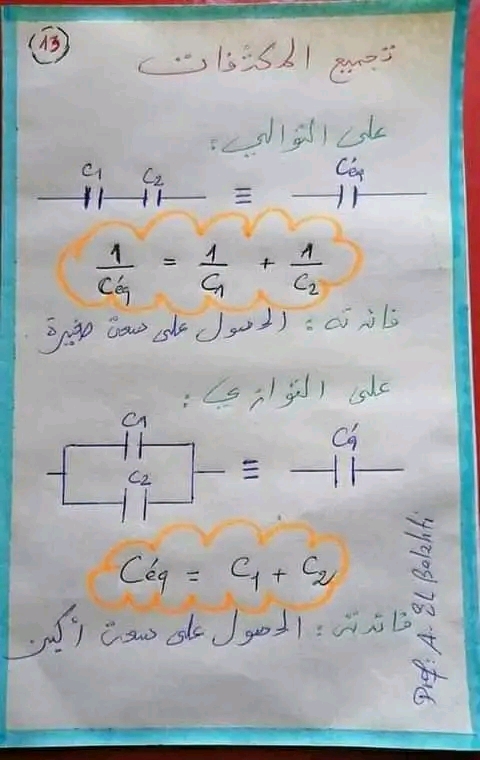 13
تجميع المكثفات
على التوالي:
C1 C2 ≡ Céq
1/Céq = 1/C1 + 1/C2
فائدته: الحصول على سعة صغيرة
على التوازي:
C1
C2 ≡ Céq
Céq = C1 + C2
فائدته: الحصول على سعة أكبر
Prof: A. EL Balahti